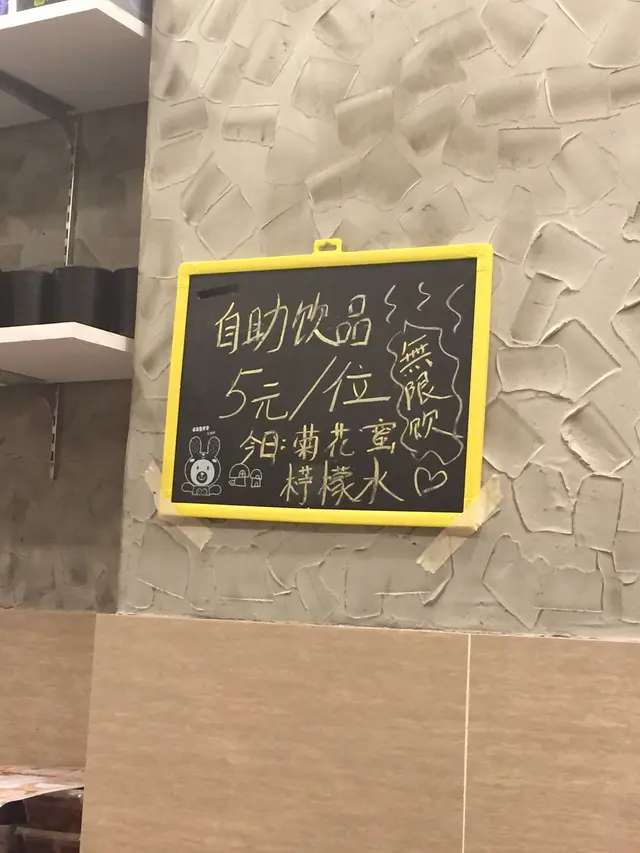 自助饮品
5元/位
無限饮
今日:菊花蜜
柠檬水